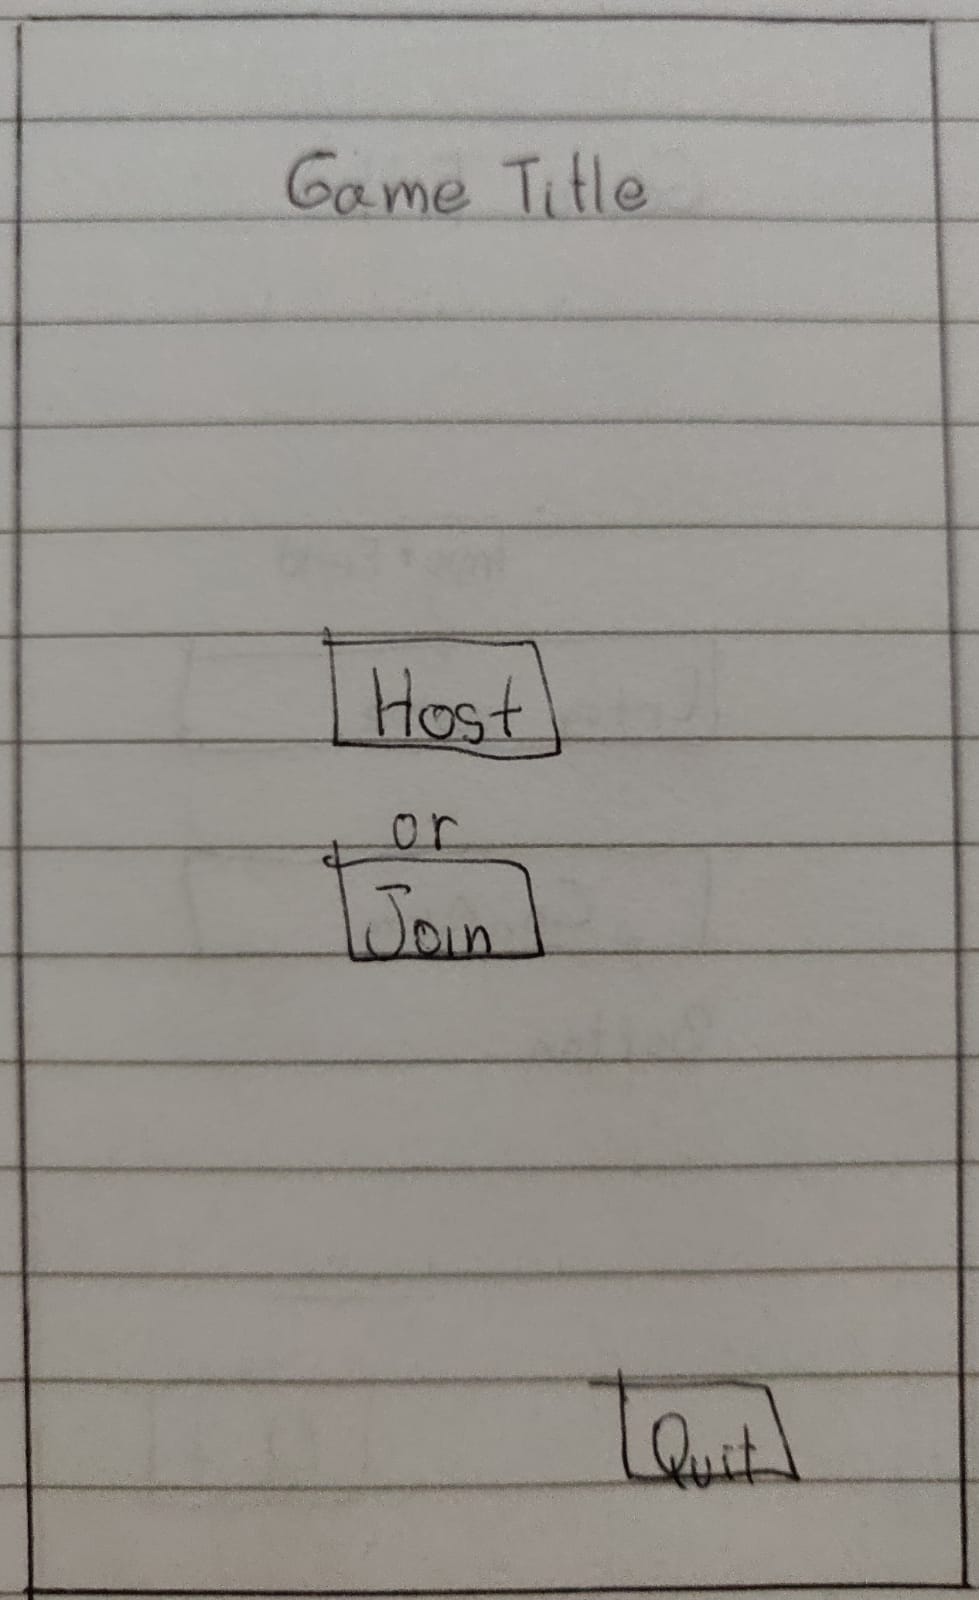 Game Title
Host
or
Join
Quit